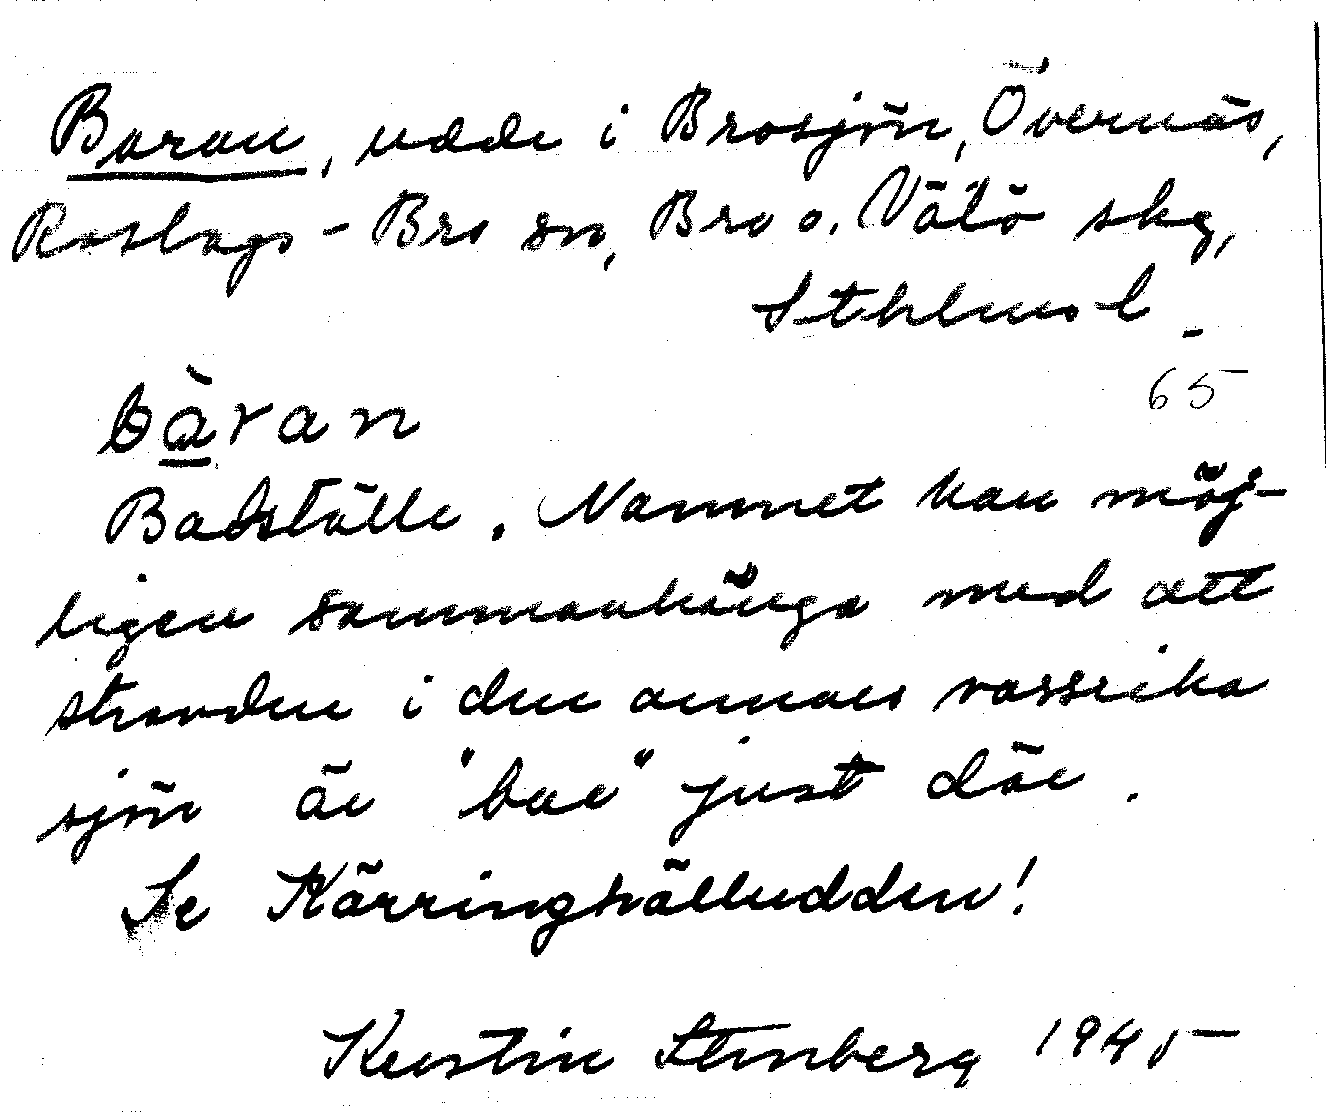 Baran, udde i Brosjön, Övernäs,
Roslags-Bro sn, Bro o. Vätö skg,
Sthlms l
65
bàran
Badställe. Namnet kan möj-
ligen sammanhänga med att
stranden i den annars vassrika
sjön är "bar" just där.
Se Kärringhälludden!
Kerstin Stenberg 1945